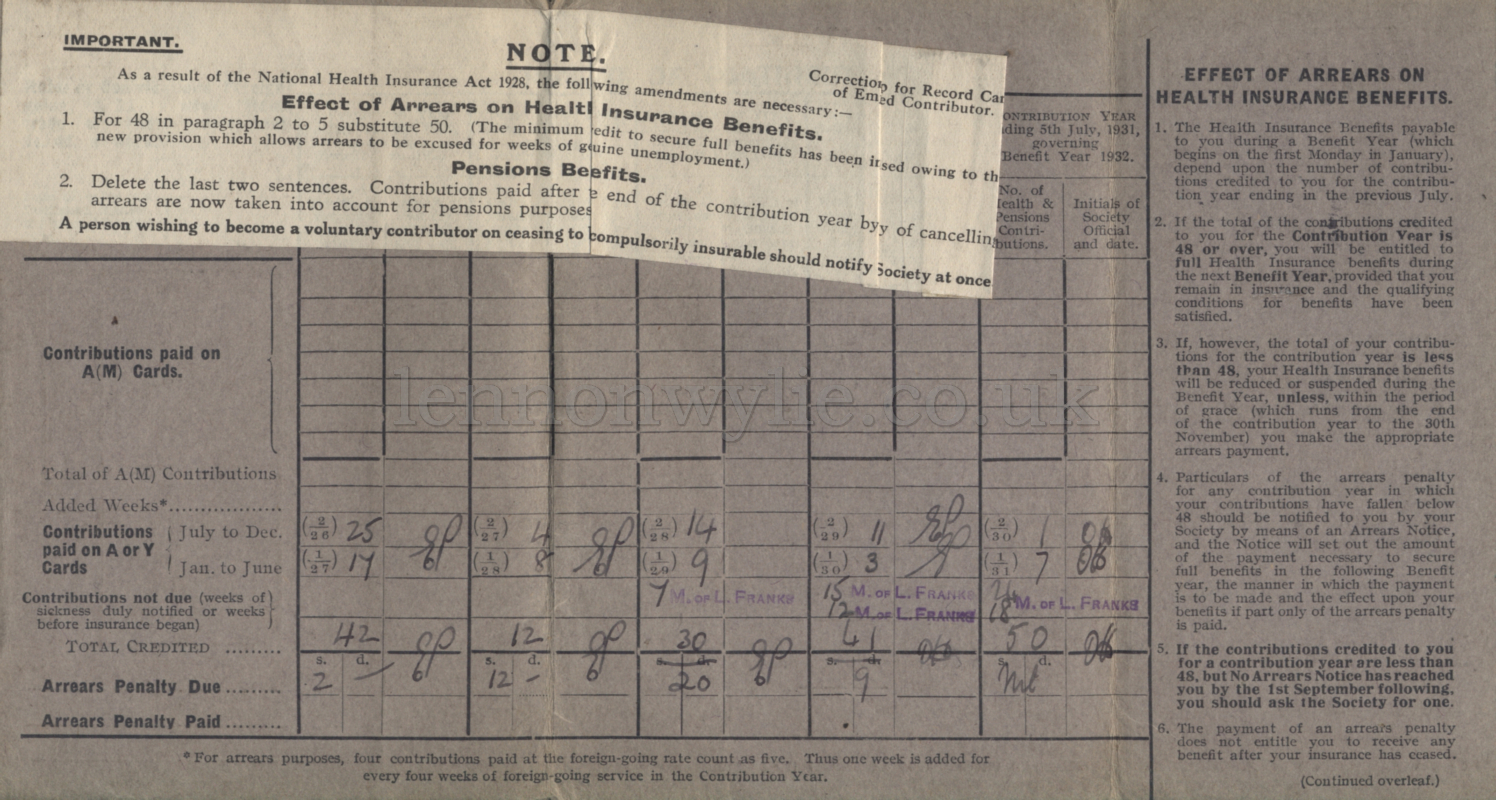 IMPORTANT.
NOTE.
Correction for Record Car
of Em ed Contributor.
As a result of the National Health Insurance Act 1928, the foll wing amendments are necessary:—
Effect of Arrears on Healt Insurance Benefits.
1. For 48 in paragraph 2 to 5 substitute 50. (The minimum edit to secure full benefits has been sed owing to th
new provision which allows arrears to be excused for weeks of g uine unemployment.)
Pensions Be efits.
2. Delete the last two sentences. Contributions paid after e end of the contribution year by y of cancellin
arrears are now taken into account for pensions purposes
A person wishing to become a voluntary contributor on ceasing to compulsorily insurable should notify Society at once
ONTRIBUTION YEAR
ding 5th July, 1931,
governing
Benefit Year 1932.
No. of
ealth &
Pensions
Contri-
butions.
Initials of
Society
Official
and date.
Contributions paid on
A(M) Cards.
lennonwylie.co.uk
Total of A(M) Contributions
Added Weeks*
Contributions
paid on A or Y
Cards
July to Dec. (2/26) 25 (2/27) 4 (2/28) 14 (2/29) 11 (2/30) 1
Jan. to June (1/27) 17 (1/28) 8 (1/29) 9 (1/30) 3 (1/31) 7
Contributions not due (weeks of
sickness duly notified or weeks
before insurance began)
7 M. OF L. FRANKS 15 M. OF L. FRANKS
12 M. OF L. FRANKS 18 M. OF L. FRANKS
TOTAL CREDITED ......... 42 12 30 41 50
s. d. s. d. s. d. s. d. s. d.
Arrears Penalty Due ......... 2 – 12 – 20 9 Nil
Arrears Penalty Paid .........
*For arrears purposes, four contributions paid at the foreign-going rate count as five. Thus one week is added for
every four weeks of foreign-going service in the Contribution Year.
EFFECT OF ARREARS ON
HEALTH INSURANCE BENEFITS.
1. The Health Insurance Benefits payable
to you during a Benefit Year (which
begins on the first Monday in January),
depend upon the number of contribu-
tions credited to you for the contribu-
tion year ending in the previous July.
2. If the total of the contributions credited
to you for the Contribution Year is
48 or over, you will be entitled to
full Health Insurance benefits during
the next Benefit Year, provided that you
remain in insurance and the qualifying
conditions for benefits have been
satisfied.
3. If, however, the total of your contribu-
tions for the contribution year is less
than 48, your Health Insurance benefits
will be reduced or suspended during the
Benefit Year, unless, within the period
of grace (which runs from the end
of the contribution year to the 30th
November) you make the appropriate
arrears payment.
4. Particulars of the arrears penalty
for any contribution year in which
your contributions have fallen below
48 should be notified to you by your
Society by means of an Arrears Notice,
and the Notice will set out the amount
of the payment necessary to secure
full benefits in the following Benefit
year, the manner in which the payment
is to be made and the effect upon your
benefits if part only of the arrears penalty
is paid.
5. If the contributions credited to you
for a contribution year are less than
48, but No Arrears Notice has reached
you by the 1st September following,
you should ask the Society for one.
6. The payment of an arrears penalty
does not entitle you to receive any
benefit after your insurance has ceased.
(Continued overleaf.)